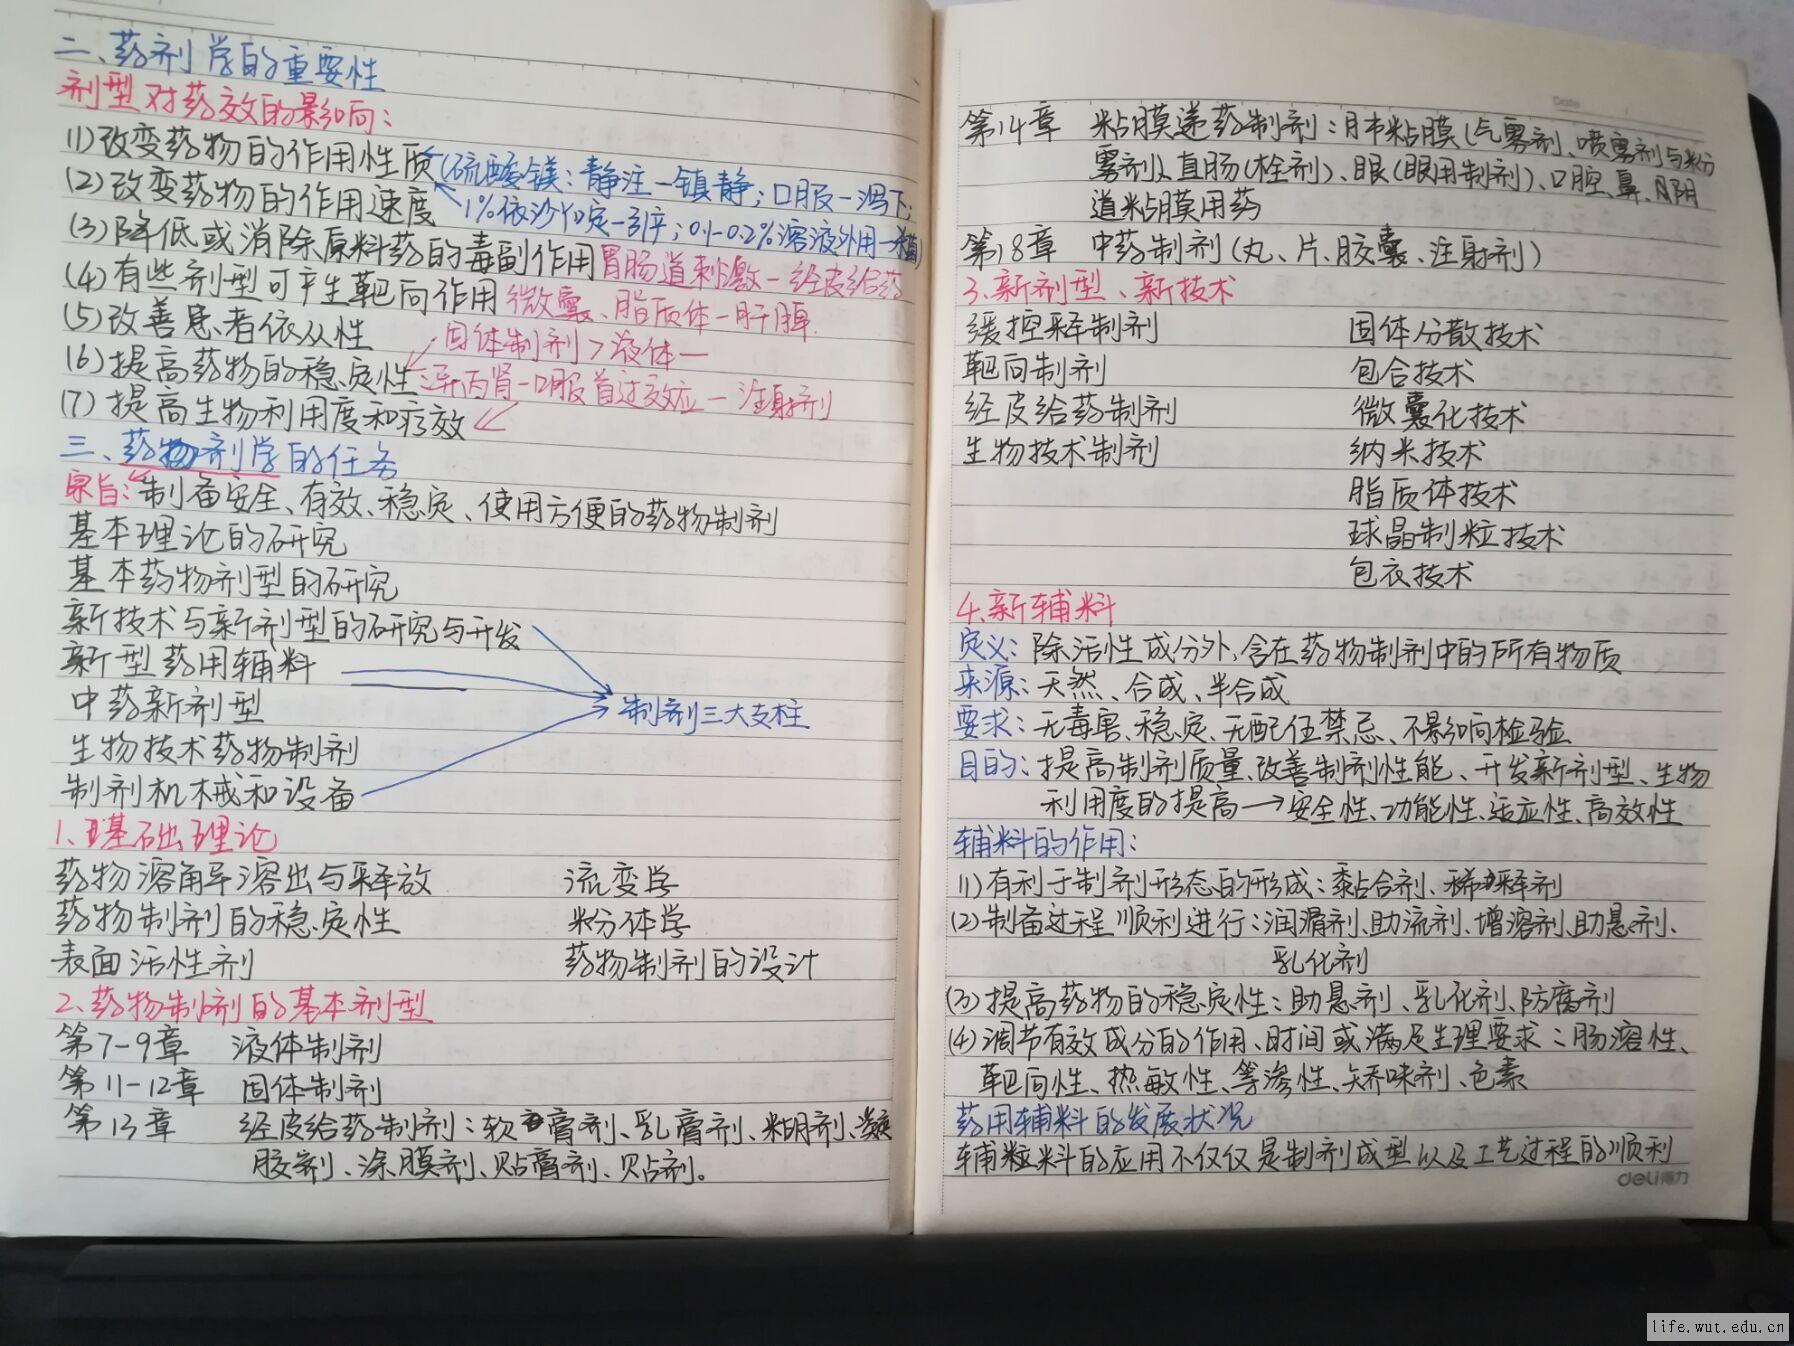 二、药剂学的重要性
剂型对药效的影响:
(1)改变药物的作用性质(硫酸镁:静注—镇静;口服—泻下;
(2)改变药物的作用速度 1%依沙吖啶—引产;0.1-0.2%溶液外用—杀菌)
(3)降低或消除原料药的毒副作用 胃肠道刺激—经皮给药
(4)有些剂型可产生靶向作用 微囊、脂质体—肝脾
(5)改善患者依从性 固体制剂>液体—
(6)提高药物的稳定性 异丙肾—口服首过效应—注射剂
(7)提高生物利用度和疗效
三、药物剂学的任务
宗旨:制备安全、有效、稳定、使用方便的药物制剂
基本理论的研究
基本药物剂型的研究
新技术与新剂型的研究与开发
新型药用辅料
制剂三大支柱
中药新剂型
生物技术药物制剂
制剂机械和设备
1.基础理论
药物溶解溶出与释放 流变学
药物制剂的稳定性 粉体学
表面活性剂 药物制剂的设计
2.药物制剂的基本剂型
第7-9章 液体制剂
第11-12章 固体制剂
第13章 经皮给药制剂:软膏剂、乳膏剂、糊剂、凝
胶剂、涂膜剂、贴膏剂、贴剂。
Date
第14章 粘膜递药制剂:肺粘膜(气雾剂、喷雾剂与粉
雾剂)、直肠(栓剂)、眼(眼用制剂)、口腔、鼻、阴
道粘膜用药
第18章 中药制剂(丸、片、胶囊、注射剂)
3.新剂型、新技术
缓控释制剂 固体分散技术
靶向制剂 包合技术
经皮给药制剂 微囊化技术
生物技术制剂 纳米技术
脂质体技术
球晶制粒技术
包衣技术
4.新辅料
定义:除活性成分外,含在药物制剂中的所有物质
来源:天然、合成、半合成
要求:无毒害、稳定、无配伍禁忌、不影响检验
目的:提高制剂质量、改善制剂性能、开发新剂型、生物
利用度的提高→安全性、功能性、适应性、高效性
辅料的作用:
(1)有利于制剂形态的形成:黏合剂、稀释剂
(2)制备过程顺利进行:润滑剂、助流剂、增溶剂、助悬剂、
乳化剂
(3)提高药物的稳定性:助悬剂、乳化剂、防腐剂
(4)调节有效成分的作用、时间或满足生理要求:肠溶性、
靶向性、热敏性、等渗性、矫味剂、色素
药用辅料的发展状况
辅料的应用不仅仅是制剂成型以及工艺过程的顺利
deli得力
life.wut.edu.cn